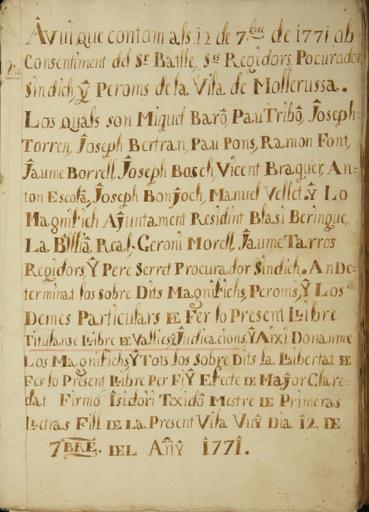 Avui que contam als 12 de 7bre de 1771 ab
Consentiment del Sr Batlle, Srs Regidors, Pocurador
Sindich, ÿ Peroms de la Vila de Mollerussa.
Los quals son Miquel Barô, Pau Tribô, Joseph
Torren, Joseph Bertran, Pau Pons, Ramon Font,
Jaume Borrell, Joseph Bosch, Vicent Braquer, An-
ton Escolâ, Joseph Bonjoch, Manuel Vellet, ÿ Lo
Magnifich Ajuntament Residint Blasi Beringue,
La Real, Geroni Morell, Jaume Tarros
Regidors, Ÿ Pere Serret Procurador Sindich. An De-
terminat los sobre Dits Magnifichs, Peroms, Ÿ Los
Demes Particulars DE Fer lo Present Llibre
Titulanse Llibre DE Vallies, ÿ Judicacions, Ÿ Aixi Donanme
Los Magnifichs, Ÿ Tots los sobre Dits la Llibertat DE
Fer lo Present Llibre Per Fi, Ÿ Efecte DE Major Clare-
dat Firmo Isidori Toxidô Mestre DE Primeras
Lletras Fill DE LA Present Vila Vuÿ Dia 12 DE
7BRE. DEL Anÿ 1771.